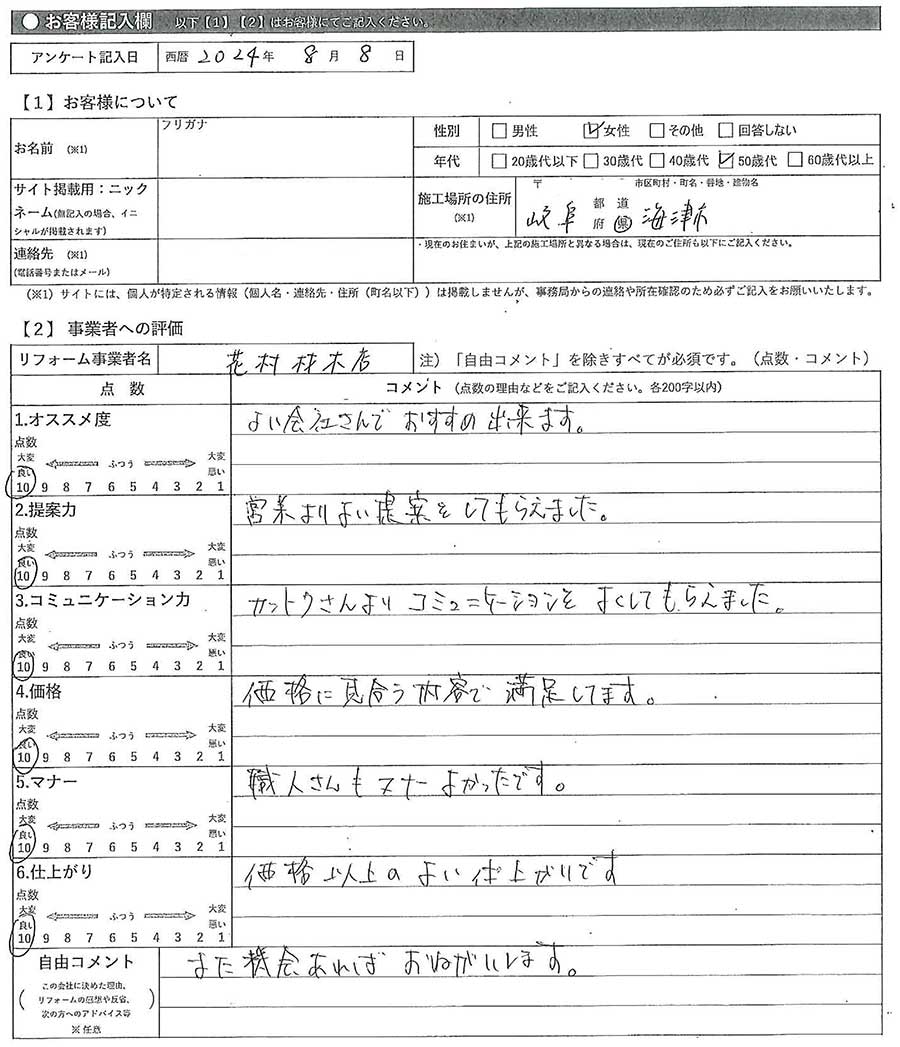 ● お客様記入欄 以下【1】【2】はお客様にてご記入ください。
アンケート記入日 西暦 2024年 8月 8日
【1】お客様について
お名前 (※1) フリガナ
性別 □男性 ☑女性 □その他 □回答しない
年代 □20歳代以下 □30歳代 □40歳代 ☑50歳代 □60歳代以上
サイト掲載用:ニックネーム(無記入の場合、イニシャルが掲載されます)
施工場所の住所 (※1) 〒 市区町村・町名・番地・建物名
岐阜 都道府県 海津市
連絡先 (※1)
(電話番号またはメール)
・現在のお住まいが、上記の施工場所と異なる場合は、現在のご住所も以下にご記入ください。
(※1)サイトには、個人が特定される情報(個人名・連絡先・住所(町名以下))は掲載しませんが、事務局からの連絡や所在確認のため必ずご記入をお願いいたします。
【2】事業者への評価
リフォーム事業者名 花村材木店 注)「自由コメント」を除きすべてが必須です。(点数・コメント)
点数 コメント(点数の理由などをご記入ください。各200字以内)
1.オススメ度 よい会社さんでおすすめ出来ます。
点数
大変良い ふつう 大変悪い
10 9 8 7 6 5 4 3 2 1
2.提案力 営業よりよい提案をしてもらえました。
点数
大変良い ふつう 大変悪い
10 9 8 7 6 5 4 3 2 1
3.コミュニケーション力 カットウさんよりコミュニケーションをよくしてもらえました。
点数
大変良い ふつう 大変悪い
10 9 8 7 6 5 4 3 2 1
4.価格 価格に見合う内容で満足してます。
点数
大変良い ふつう 大変悪い
10 9 8 7 6 5 4 3 2 1
5.マナー 職人さんもマナーよかったです。
点数
大変良い ふつう 大変悪い
10 9 8 7 6 5 4 3 2 1
6.仕上がり 価格以上のよい仕上がりです
点数
大変良い ふつう 大変悪い
10 9 8 7 6 5 4 3 2 1
自由コメント また機会あればおねがいします。
(この会社に決めた理由、
リフォームの感想や反省、
次の方へのアドバイス等)
※任意